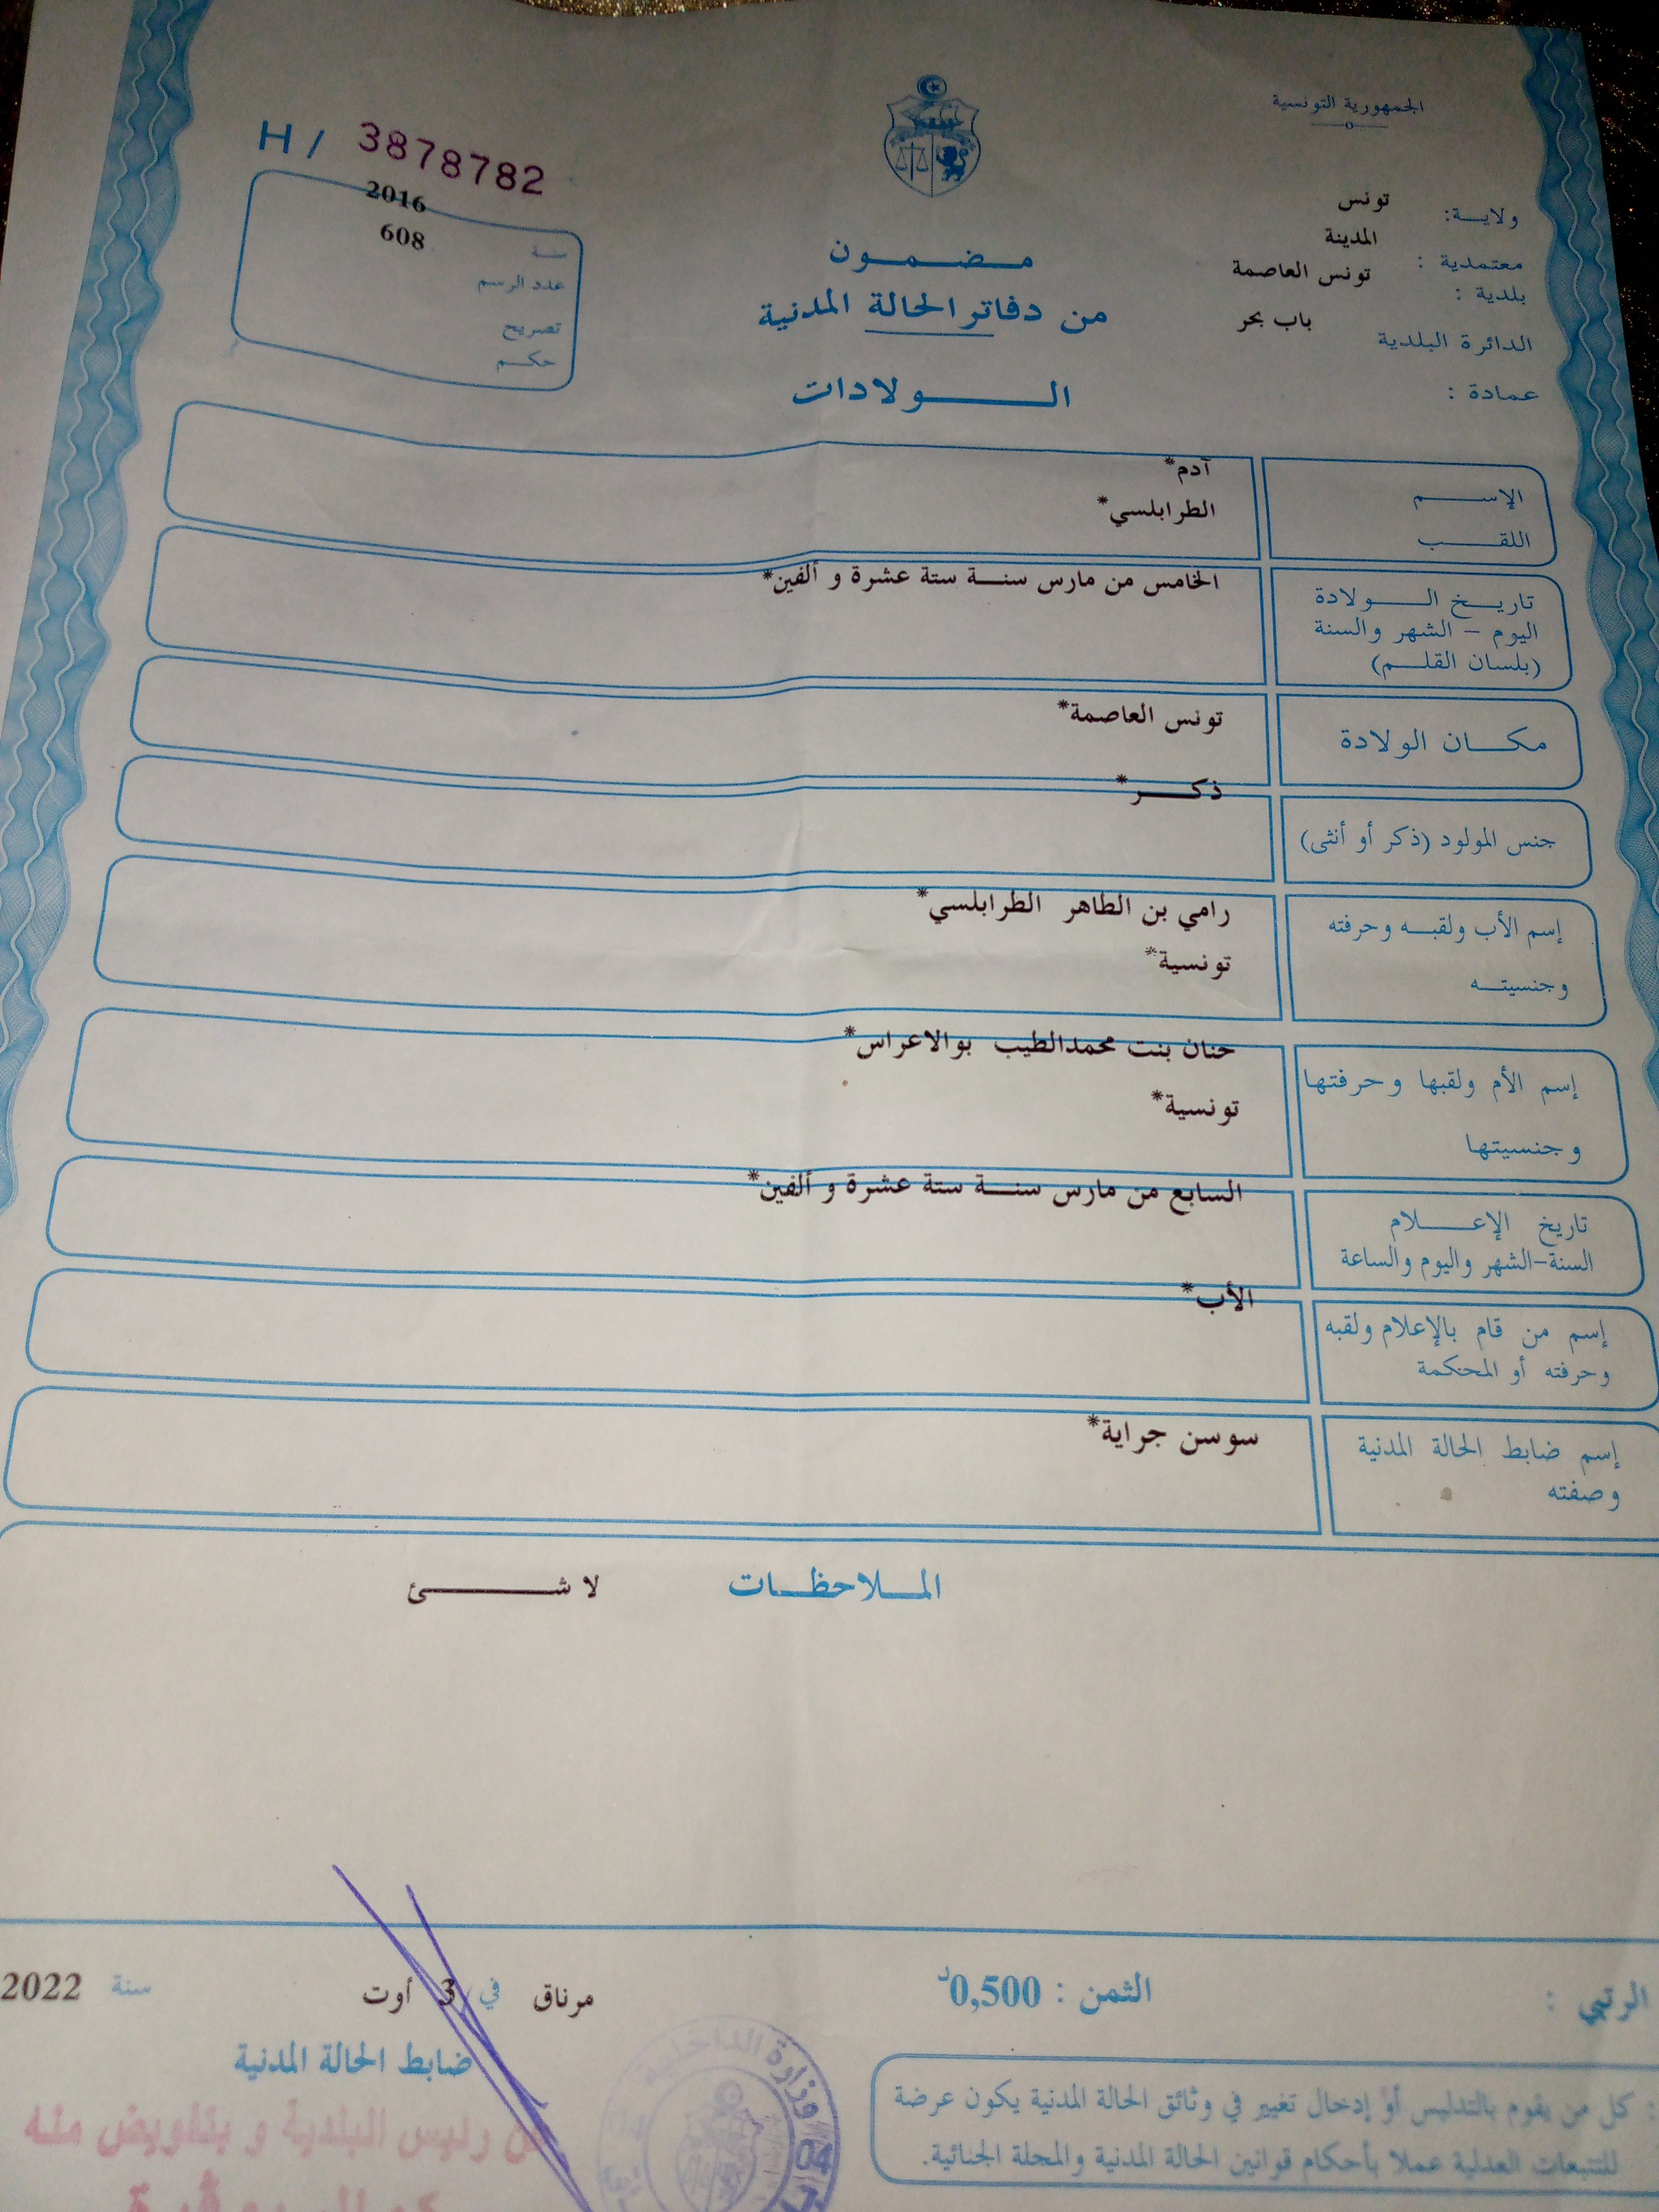 الجمهورية التونسية
H / 3878782
ولايـــة: تونس
معتمدية : المدينة
بلدية : تونس العاصمة
الدائرة البلدية باب بحر
عمادة :
سنة 2016
عدد الرسم 608
تصريح
حكم
مضمون
من دفاتر الحالة المدنية
الولادات
الإسم آدم*
اللقب الطرابلسي*
تاريخ الولادة الخامس من مارس سنة ستة عشرة و ألفين*
اليوم - الشهر والسنة
(بلسان القلم)
مكان الولادة تونس العاصمة*
جنس المولود (ذكر أو أنثى) ذكر*
إسم الأب ولقبه وحرفته رامي بن الطاهر الطرابلسي*
وجنسيته تونسية*
إسم الأم ولقبها وحرفتها حنان بنت محمدالطيب بوالاعراس*
وجنسيتها تونسية*
تاريخ الإعلام السابع من مارس سنة ستة عشرة و ألفين*
السنة-الشهر واليوم والساعة
إسم من قام بالإعلام ولقبه الأب*
وحرفته أو المحكمة
إسم ضابط الحالة المدنية سوسن جراية*
وصفته
الملاحظات لا شئ
الرتبي :
الثمن : 0,500د
مرناق في 3 أوت سنة 2022
ضابط الحالة المدنية
عن رئيس البلدية و بتفويض منه
وزارة الداخلية
04
كل من يقوم بالتدليس أو إدخال تغيير في وثائق الحالة المدنية يكون عرضة
للتتبعات العدلية عملا بأحكام قوانين الحالة المدنية والمجلة الجنائية.